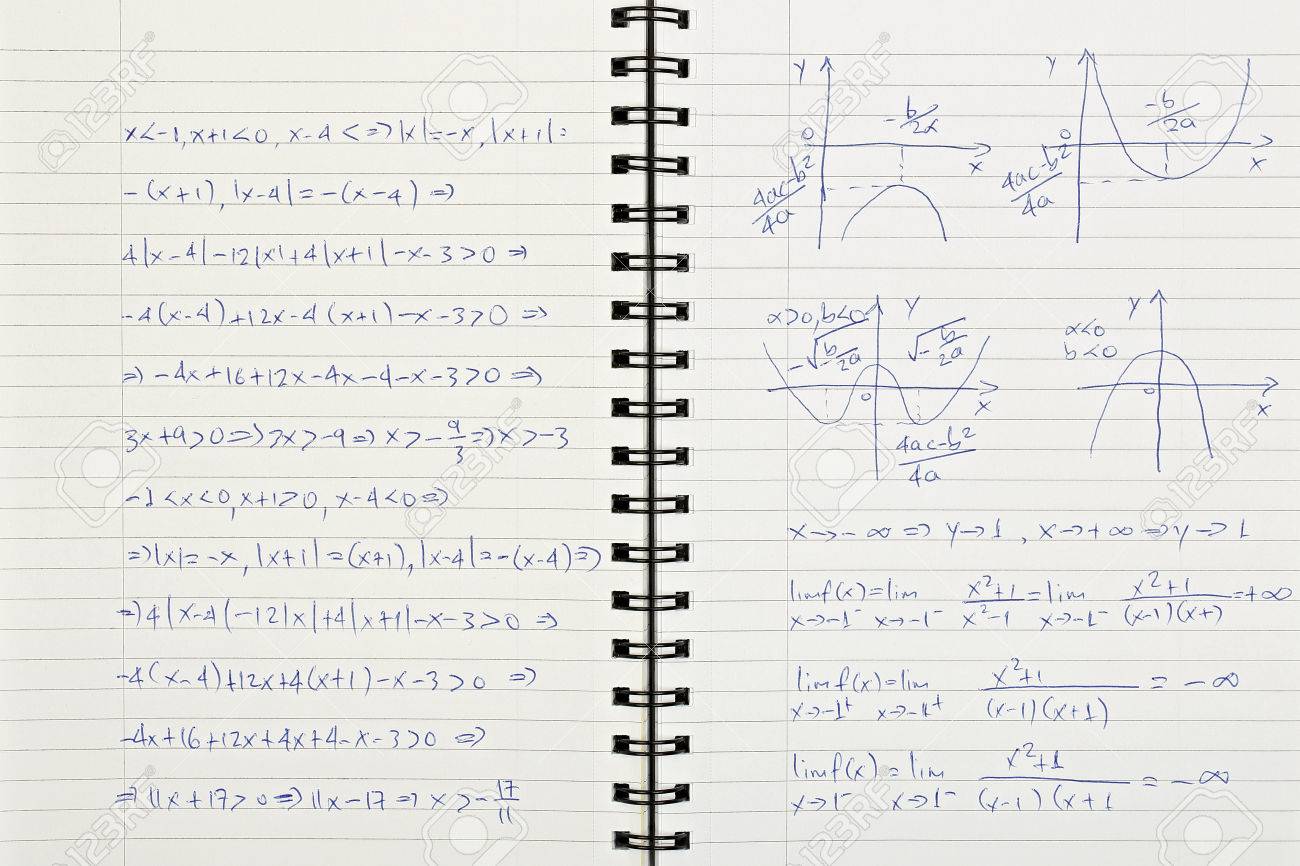 x<-1, x+1<0, x-4<=>|x|=-x, |x+1|=
-(x+1), |x-4|=-(x-4) =>
4|x-4|-12|x|+4|x+1|-x-3>0 =>
-4(x-4)+12x-4(x+1)-x-3>0 =>
=>-4x+16+12x-4x-4-x-3>0 =>
3x+9>0=>3x>-9=>x>-9/3=>x>-3
-1<x<0, x+1>0, x-4<0=>
=>|x|=-x, |x+1|=(x+1), |x-4|=-(x-4)=>
=>4|x-4|-12|x|+4|x+1|-x-3>0 =>
-4(x-4)+12x+4(x+1)-x-3>0 =>
-4x+16+12x+4x+4-x-3>0 =>
=>11x+17>0=>11x-17=>x>-17/11
y
-b/2a
0
x
4ac-b²/4a
y
-b/2a
0
x
4ac-b²/4a
α>0, b<0
y
-√-b/2a
√-b/2a
0
x
4ac-b²/4a
y
α<0
b<0
0
x
x→-∞ => y→1, x→+∞ => y→1
lim f(x)=lim x²+1/x²-1=lim x²+1/(x-1)(x+)=+∞
x→-1⁻ x→-1⁻ x→-1⁻
lim f(x)=lim x²+1/(x-1)(x+1) = -∞
x→-1⁺ x→-1⁺
lim f(x)=lim x²+1/(x-1)(x+1 = -∞
x→1⁻ x→1⁻
123RF